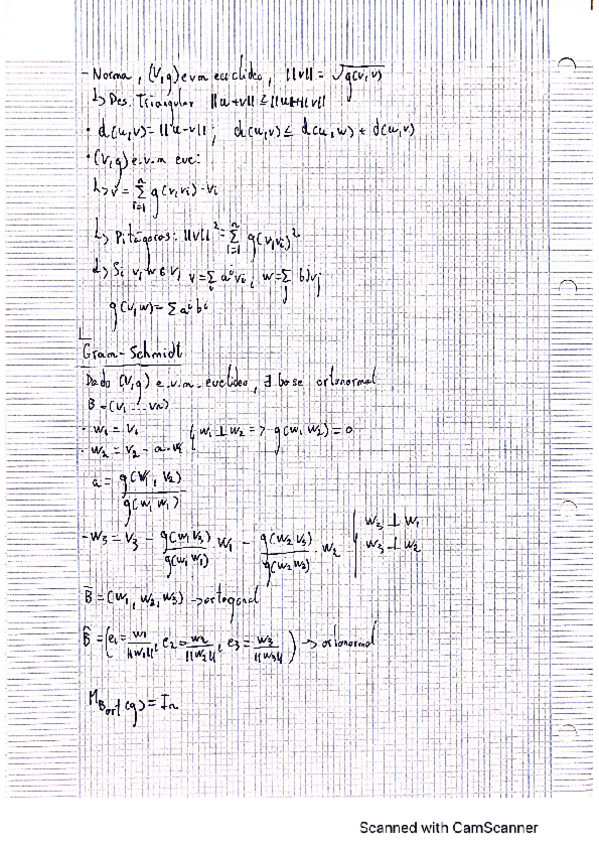 - Norma, (V,g) e.v.m euclídeo, ||v|| = √g(v,v)
↳ Des. Triangular ||u+v|| ≤ ||u||+||v||
· d(u,v)=||u-v||; d(u,v) ≤ d(u,w) + d(w,v)
· (V,g) e.v.m euc:
↳ v = Σ_{i=1}^{n} g(v,vi)·vi
↳ Pitágoras: ||v||² = Σ_{i=1}^{n} g(v,vi)²
↳ Si v,w ∈ V, v=Σ_i aⁱvi, w=Σ_j bʲvj
g(v,w)= Σ aⁱbⁱ
Gram-Schmidt
Dado (V,g) e.v.m. euclídeo, ∃ base ortonormal
B=(v1 ... vn)
- w1 = v1
- w2 = v2 - a·w1 { w1 ⊥ w2 => g(w1 w2) = 0
a = g(w1, v2) / g(w1 w1)
- w3 = v3 - g(w1 v3)/g(w1 w1) w1 - g(w2 v3)/g(w2 w2) · w2 { w3 ⊥ w1
w3 ⊥ w2
B̄ = (w1, w2, w3) → ortogonal
B̂ = (e1 = w1/||w1||, e2 = w2/||w2||, e3 = w3/||w3||) → ortonormal
M_{Bort}(g) = In
Scanned with CamScanner